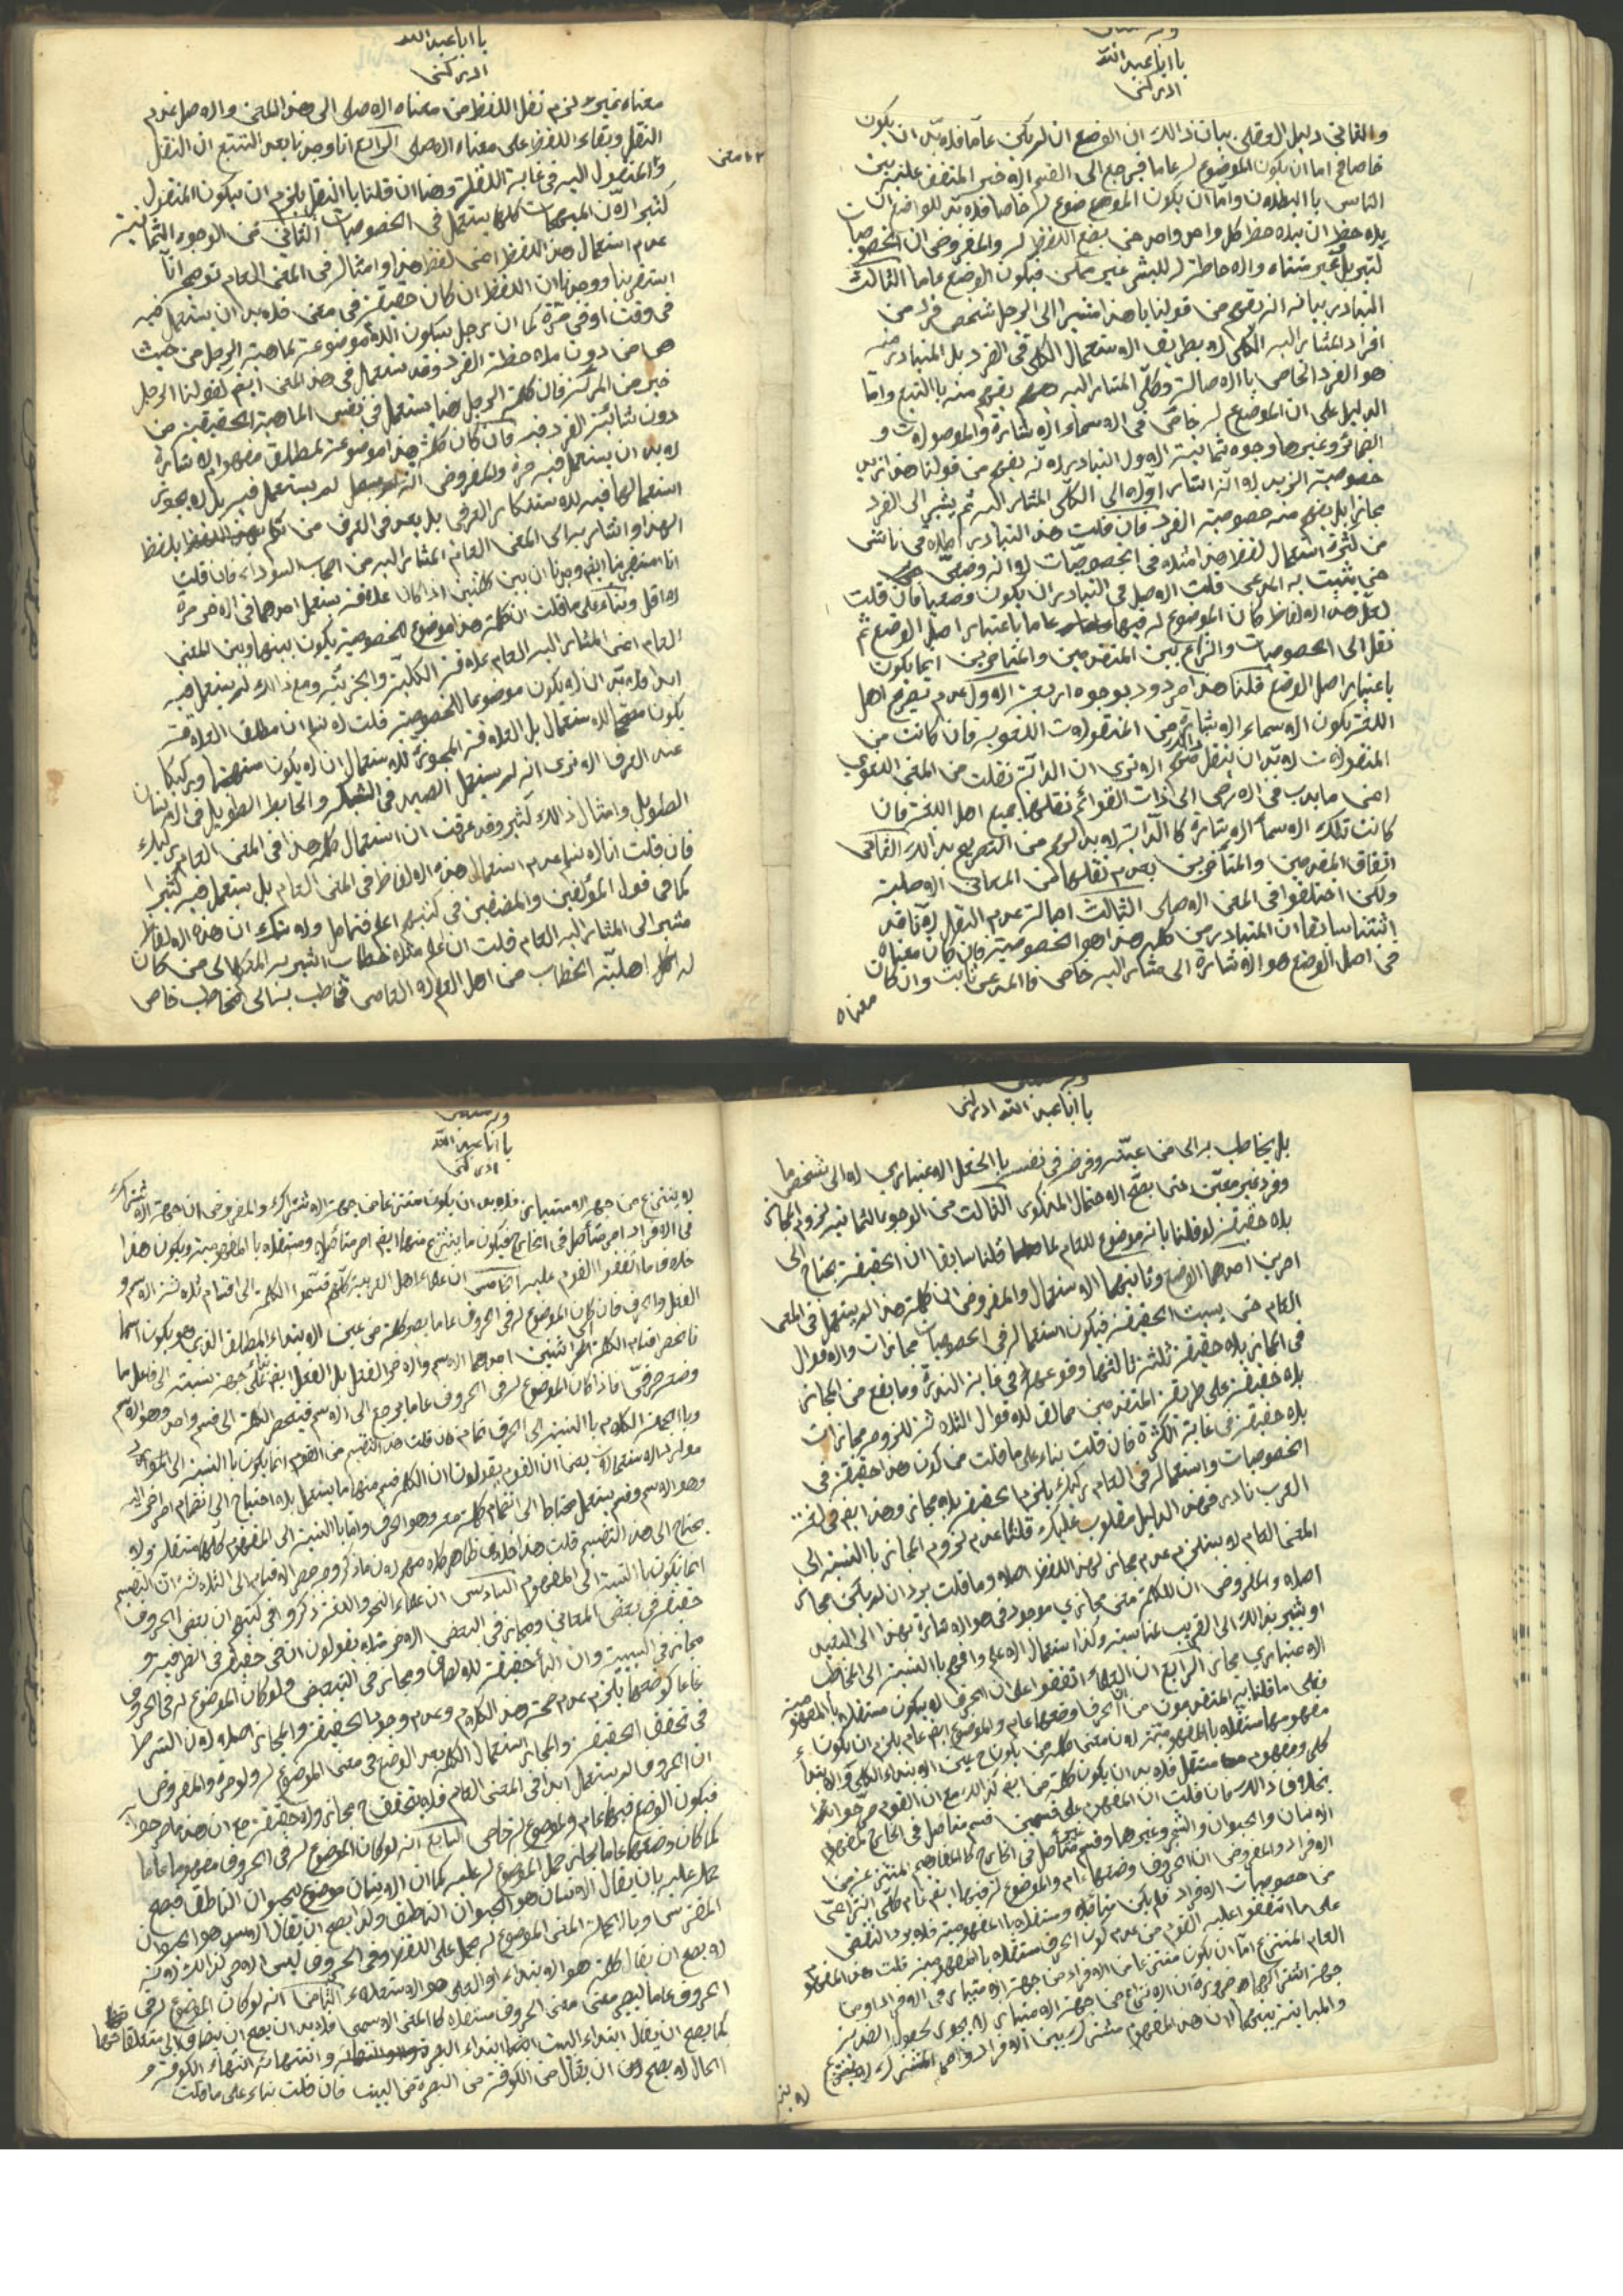 يا ابا عبد الله
ادركنى
والثانى دليل العقلى بيان ذالك ان الوضع ان لم يكن عاما فلا بد ان يكون
خاصا فح اما ان يكون الموضوع له عاما فيرجع الى القسم الاخير المتفق عليه بين
الناس بالبطلان واما ان يكون الموضوع له خاصا فلا بد للواضع ان
يلاحظ ان يلاحظ كل واحد واحد حتى يضع اللفظ له والمفروض ان الخصوصيات
كثيرة بل غير متناه والاحاطة له للبشر غير ممكن فيكون الوضع عاما الثالث
التبادر بيانه انه يفهم من قولنا يا هذا مشيرا الى الرجل شخص فرد من
افراد المشار اليه الكلى لا بطريق الاستعمال الكلى فى الفرد بل المتبادر منه
هو الفرد الخاص بالاصالة وكلى المشار اليه يفهم منه بالتبع واما
الدليل على ان الموضوع له خاص فى الاسماء الاشارة والموصولات و
الضمائر وغيرها وجوه ثمانية الاول التبادر لانه يفهم من قولنا هذا زيد
خصوصية الزيد لا انه اشار اولا الى الكلى المشار اليه ثم يشير الى الفرد
مجازا بل يفهم منه خصوصية الفرد فان قلت هذا التبادر اطلاقى ناشى
من كثرة استعمال لفظ هذا مثلا فى الخصوصيات لا انه وضعى
حتى يثبت به المدعى قلت الاصل فى التبادر ان يكون وضعيا فان قلت
لعل هذه الالفاظ كان الموضوع له فيها عاما باعتبار اصل الوضع ثم
نقل الى الخصوصيات والنزاع بين المتقدمين والمتاخرين انما يكون
باعتبار اصل الوضع قلنا هذا مردود بوجوه اربعة الاول عدم تصريح اهل
اللغة بكون الاسماء الاشارة من المنقولات اللغوية فان كانت من
المنقولات لا بد ان ينقل الا ترى ان الدابة نقلت من المعنى اللغوى
اعنى ما يدب فى الارض الى ذات القوائم نقلها جميع اهل اللغة فان
كانت تلك الاسماء الاشارة كالدابة لا بد لهم من التصريح بذالك الثانى
اتفاق المتقدمين والمتاخرين بعدم نقلها من المعانى الاصلية
ولكن اختلفوا فى المعنى الاصلى الثالث اصالة عدم النقل لانا قد
اثبتنا سابقا ان المتبادر من كلمة هذا هو الخصوصية فان كان معناه
فى اصل الوضع هو الاشارة الى مشار اليه خاص فالمدعى ثابت وان كان
معناه
يا ابا عبد الله
ادركنى
معناه غيره لزم نقل اللفظ من معناه الاصلى الى هذا المعنى والاصل عدم
النقل وبقاء اللفظ على معناه الاصلى الرابع انا وجدنا بعد التتبع ان النقل
والمنقول اليه فى غاية القلة وهنا ان قلنا بالنقل يلزم ان يكون المنقول
كثيرا لان المبهمات كلها يستعمل فى الخصوصيات الثانى من الوجوه الثمانية
عدم استعمال هذا اللفظ اعنى لفظ هذا وامثاله فى المعنى العام توضيحه انا
استقرينا ووجدنا ان اللفظ ان كان حقيقة فى معنى فلا بد ان يستعمل فيه
فى وقت او فى مرة كما ان رجل بسكون اللام موضوعة لماهية الرجل من حيث
هى من دون ملاحظة الفرد وقد يستعمل فى هذا المعنى ايضا كقولنا الرجل
خير من المرئة فان كلمة الرجل هنا يستعمل فى نفس الماهية الحقيقية من
دون شائبة الفرد فيه فان كان كلمة هذا موضوعة لمطلق مفهوم الاشارة
لا بد ان يستعمل فيه مرة والمفروض انه لم يستعمل فيه بل لا يجوز
استعمالها فيه للاستنكار العرفى بل يعد فى العرف من تكلم بلفظ
الهذا واشار به الى المعنى العام المشار اليه من اصحاب السوداء فان قلت
انا استقرينا ايضا وجدنا ان بين كلمتين اذا كان علاقة يستعمل احدهما فى الاخر مرة
لا اقل وبناء على ما قلت ان كلمة هذا موضوع للخصوصية يكون بينها وبين المعنى
العام اعنى المشار اليه العام علاقة الكلية والجزئية ومع ذالك لم يستعمل فيه
ابدا فلا بد ان لا يكون موضوعا للخصوصية قلت لا نسلم ان مطلق العلاقة
يكون مصححا للاستعمال بل العلاقة المجوزة للاستعمال ان لا يكون مستهجنا وركيكا
عند العرف الا ترى انه لم يستعمل الصيد فى الشبكة والحايط الطويل فى الانسان
الطويل وامثال ذالك كثير وقد عرفت ان استعمال كلمة هذا فى المعنى العام ركيك
فان قلت انا لا نسلم عدم استعمال هذه الالفاظ فى المعنى العام بل يستعمل فيه كثيرا
كما فى قول المؤلفين والمصنفين فى كتبهم اعلم فتامل ولا شك ان هذه الالفاظ
مشير الى المشار اليه العام قلت ان اعلم مثلا خطاب اشير به الى من كان
له اهلية الخطاب من اهل العلم لا العاصى فخاطب بالى مخاطب خاص
يا ابا عبد الله ادركنى
بل يخاطب به الى من عينه وفرضه فى نفسه بالجعل الاعتبارى لا الى شخص ما
وفرد غير معين حتى يصح الاحتمال المذكور الثالث من الوجوه الثمانية لزوم المجاز
بلا حقيقة لو قلنا بانه موضوع للعام لما قلنا سابقا ان الحقيقة يحتاج الى
امرين احدهما الوضع وثانيهما الاستعمال والمفروض ان كلمة هذا لم يستعمل فى المعنى
العام حتى يسمت الحقيقة فيكون استعماله فى الخصوصيات مجازات والاقوال
فى المجاز بلا حقيقة ثلثة ثالثها وقوعها فى غاية الندرة وما يقع من المجاز
بلا حقيقة على طريقة المتقدمين مخالف للاقوال الثلاثة للزوم مجازات
بلا حقيقة فى غاية الكثرة فان قلت بناء على ما قلت من كون هذا حقيقة فى
الخصوصيات واستعماله فى العام ركيك يلزم الحقيقة بلا مجاز وهذا ايضا فى لغة
العرب نادر فهذا الدليل مقلوب عليك قلنا عدم لزوم المجاز بالنسبة الى
المعنى العام لا يستلزم عدم مجاز لهذا اللفظ اصلا وما قلت يرد ان لم يكن مجاز
اصلا والمفروض ان للكلمة معنى مجازى موجود فى هو الاشارة بهذا الى البعيد
او يشير بذالك الى القريب لمناسبة وكذا استعمال الاعلم وافهم بالنسبة الى المخاطب
الاعتبارى مجاز الرابع ان العلماء اتفقوا على ان الحرف لا يكون مستقلا بالمفهومية
فعلى ما قلنا به المتقدمون من ان الحرف وضعها عام والموضوع ايضا عام يلزم ان يكون
مفهومها مستقلا بالمفهومية لان معنى كلمة من يكون ح عين الابتداء الكلى والابتدا
كلى ومفهوم مستقل فلا بد ان يكون كلمة من ايضا كذالك مع ان القوم صرحوا
بخلاف ذالك فان قلت ان المفهوم على قسمين قسم متاصل فى الخارج كمفهوم
الانسان والحيوان والشجر وغيرها وقسم غير متاصل فى الخارج كالمفاهيم المنتزعة من
الافراد والمفروض ان الحروف وضعها عام والموضوع له فيها ايضا عام كلى انتزاعى
من خصوصيات الافراد فلم يكن متاصلا ومستقلا بالمفهومية فلا يرد النقض
على ما اتفقوا عليه القوم من عدم كون الحرف مستقلا بالمفهومية قلت هذا المفهوم
العام المنتزع اما ان يكون منتزعا من الافراد من جهة الامتياز فى الافراد او من
جهة اشتراكها ضرورة ان الانتزاع من جهة الامتياز لا يجوز لحصول الضدية
والمباينة بينهما لان هذا المفهوم مشترك بين الافراد والمشترك لا ينتزع
يا ابا عبد الله
ادركنى
لا ينتزع من جهة الامتياز فلا بد ان يكون منتزعا من جهة الاشتراك والمفروض ان جهة الاشتراك
فى الافراد امر متاصل فى الخارج فيكون ما ينتزع منها ايضا امر متاصل ومستقلا بالمفهومية ويكون هذا
خلاف ما اتفقوا القوم عليه الخامس ان علماء اهل العربية كلهم قسموا الكلمة الى اقسام ثلاثة الاسم و
الفعل والحرف فان كان الموضوع له فى الحروف عاما يصير كلمة من عين الابتداء المطلق الذى هو يكون اسما
فانحصر اقسام الكلمة الى اثنين احدهما الاسم والاخر الفعل بل الفعل ايضا جهة نسبته الى فاعل ما
وضعه حرفى فاذا كان الموضوع له فى الحروف عاما يرجع الى الاسم فينحصر الكلمة الى قسم واحد وهو الاسم
وبالجملة الكلام بالنسبة الى الحرف تمام فان قلت هذا التقسيم من القوم انما يكون بالنسبة الى
موارد الاستعمالات بمعنى ان القوم يقولون ان الكلمة قسم منها ما يستعمل بلا احتياج الى انضمام امر اخر اليه
وهو الاسم وقسم يستعمل محتاجا الى انضمام كلمة معه وهو الحرف واما بالنسبة الى المفهوم كلها مستقلة ولا
يحتاج الى هذا التقسيم قلت هذا خلاف ظاهر كلامهم لان ما ذكروه حصر الاقسام الى الثلاثة لان التقسيم
انما يكون بالنسبة الى المفهوم السادس ان علماء النحو واللغة ذكروا فى كتبهم ان بعض الحروف
حقيقة فى بعض المعانى ومجاز فى البعض الاخر مثلا يقولون ان فى حقيقة فى الظرفية و
مجاز فى السببية وان الباء حقيقة للالصاق ومجاز فى التبعيض فلو كان الموضوع له فى الحروف
عاما كوضعها يلزم عدم صحة هذا الكلام وعدم وجود الحقيقة والمجاز اصلا لان الشرط
فى تحقق الحقيقة والمجاز استعمال الكلمة بعد الوضع فى معنى الموضوع له ولو مرة والمفروض
ان الحروف لم يستعمل ابدا فى المعنى العام فلا يتحقق ح مجاز ولا حقيقة مع ان هذا ما صرحوا به
فيكون الوضع فيها عام والموضوع له خاص السابع انه لو كان الموضوع له فى الحروف مفهوما عاما
كما كان وضعها عاما لجاز حمل الموضوع له عليه كما ان الانسان موضوع للحيوان الناطق فيصح
حمله عليه بان يقال الانسان هو الحيوان الناطق ولذا يصح ان يقال الاسد هو الحيوان
المفترس وبالجملة المعنى الموضوع له حمل على اللفظ وفى الحروف ليس الامر كذالك لانه
لا يصح ان يقال كلمة هو الابتداء او العلى هو الاستعلاء الثامن انه لو كان الموضوع له فى
الحروف عاما ليصير معنى الحروف مستقلا كالمعنى الاسمى فلا بد ان يصح ان يضاف الى متعلقاتها
كما يصح ان يقال ابتداء البيت ابتداء البصرة وانتهائه انتهاء الكوفة و
الحال لا يصح ان يقال من الكوفة من البصرة من البيت فان قلت بناء على ما قلت